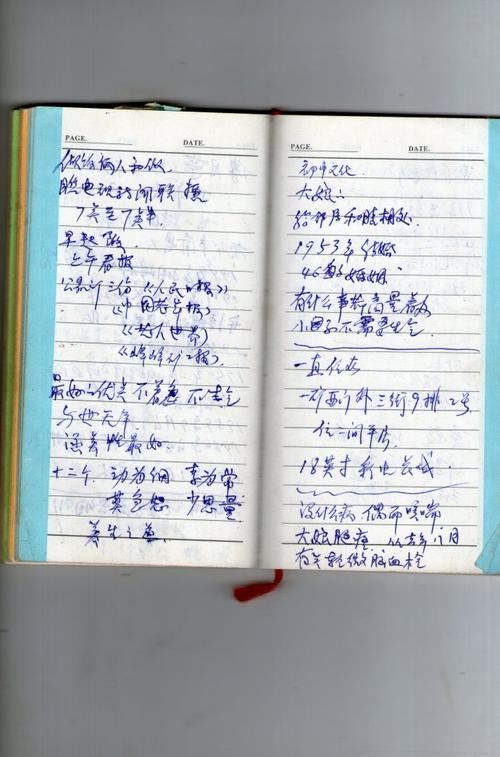 PAGE. DATE.
做给俩人和做
电视新闻联播
7点至7点半
早起
上午看报
公家订三份《人民日报》
《中国老年报》
《老人世界》
《峰峰矿工报》
最好的优点不着急 不生气
与世无争
涵养性最好
十二个 动为纲 素为常
莫色想 少思量
养生之道
PAGE. DATE.
初中文化
大娘：
给邻居和睦相处
1953年结婚
46年婚姻
有什么事 商量着办
小日子不需要生气
一直住在
一矿西门外三街9排2号
住二间平房
18英寸彩电长城
没什么病 偶而咳喘
大娘脑 从去年 个月
有点轻微脑血栓